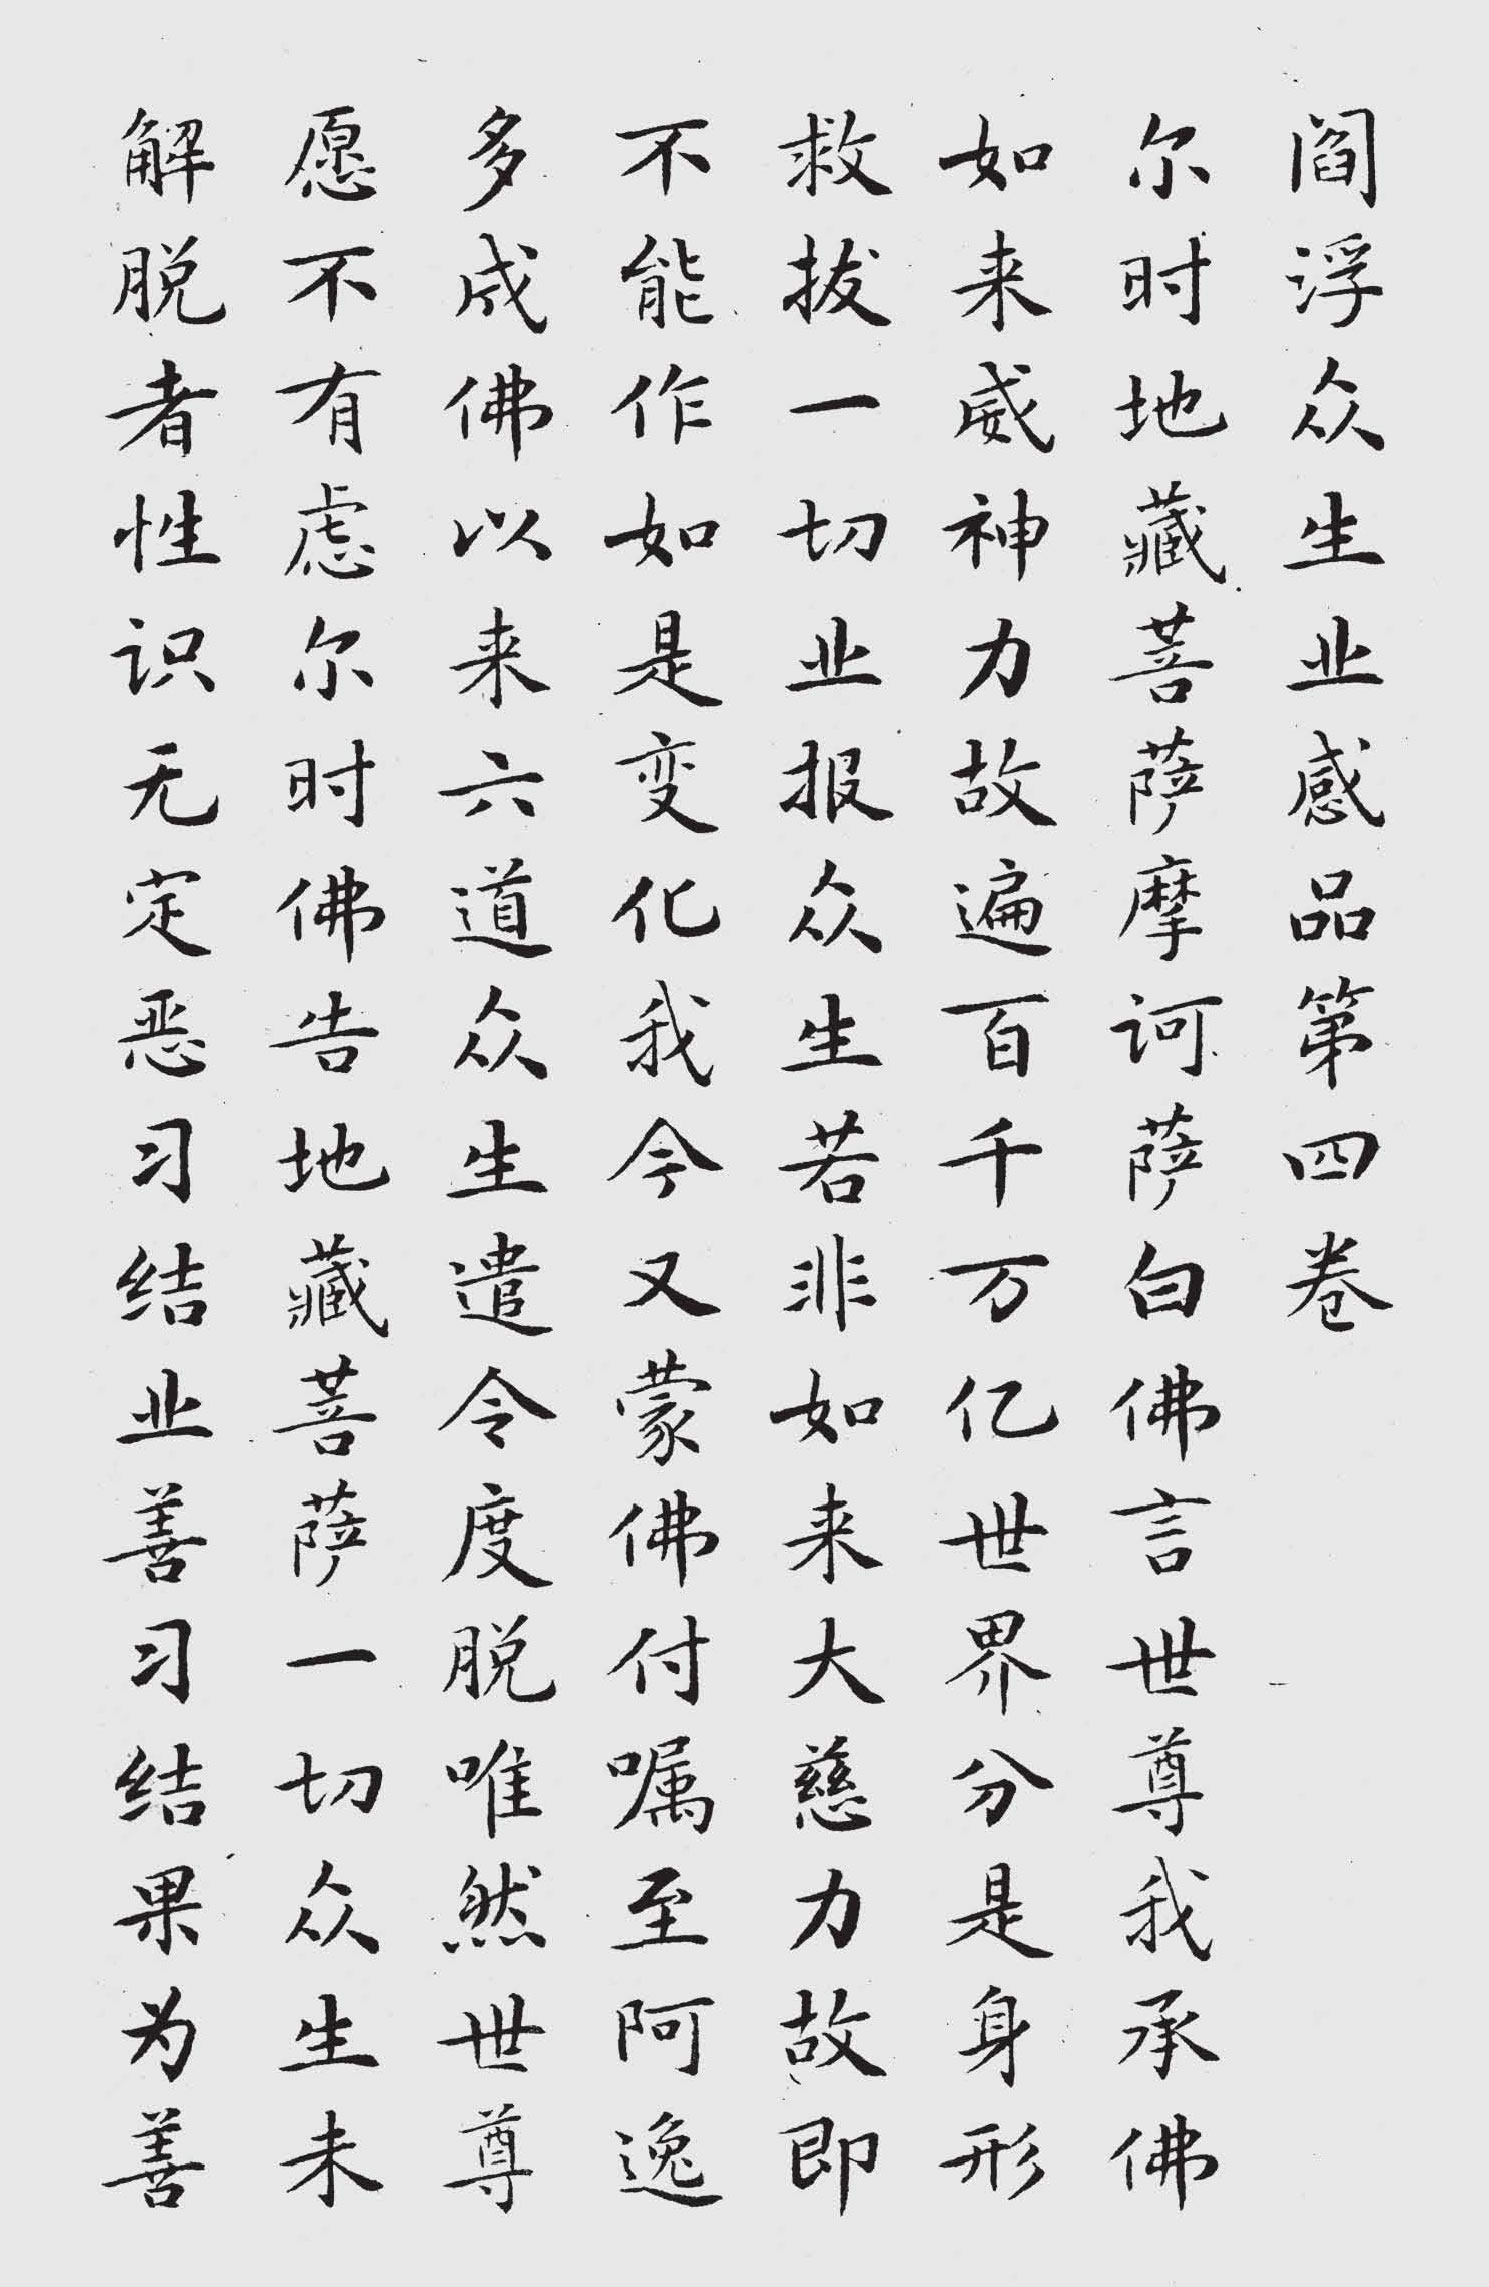 阎浮众生业感品第四卷
尔时地藏菩萨摩诃萨白佛言世尊我承佛
如来威神力故遍百千万亿世界分是身形
救拔一切业报众生若非如来大慈力故即
不能作如是变化我今又蒙佛付嘱至阿逸
多成佛以来六道众生遣令度脱唯然世尊
愿不有虑尔时佛告地藏菩萨一切众生未
解脱者性识无定恶习结业善习结果为善